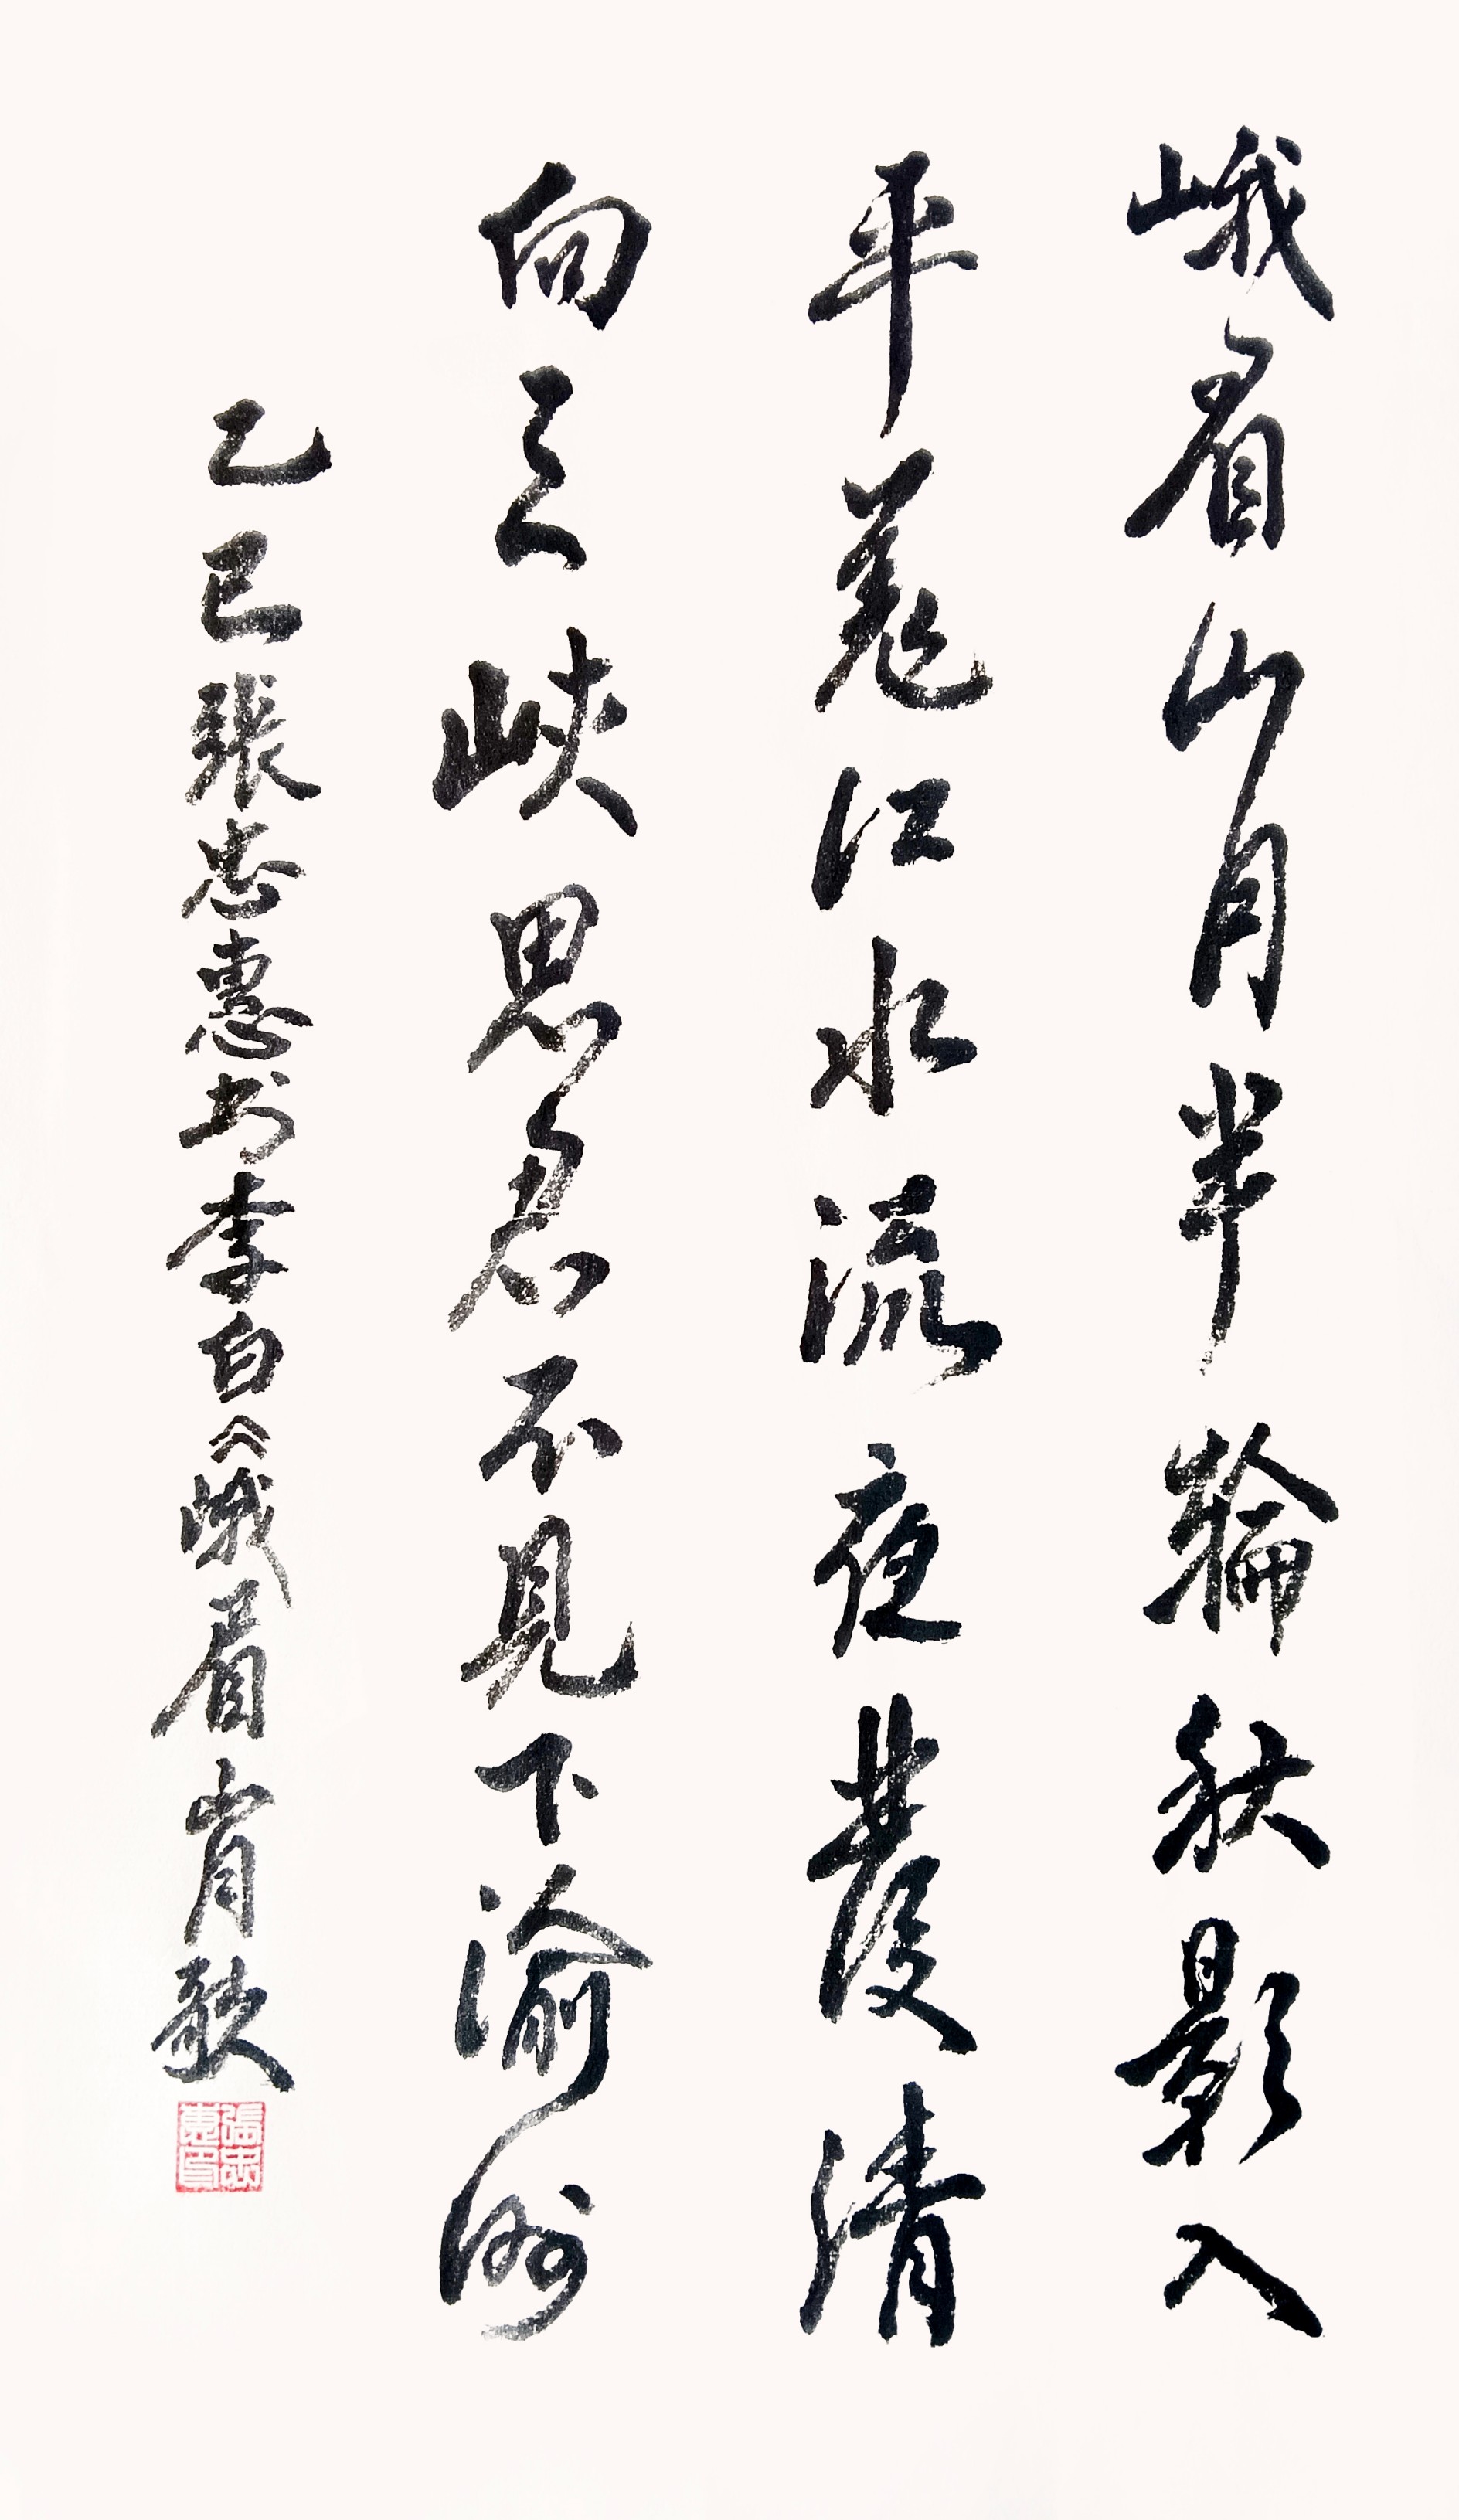 峨眉山月半輪秋影入
平羌江水流夜發清
向三峡思君不見下渝州
乙巳張忠惠书李白《峨眉山月歌
張忠惠印